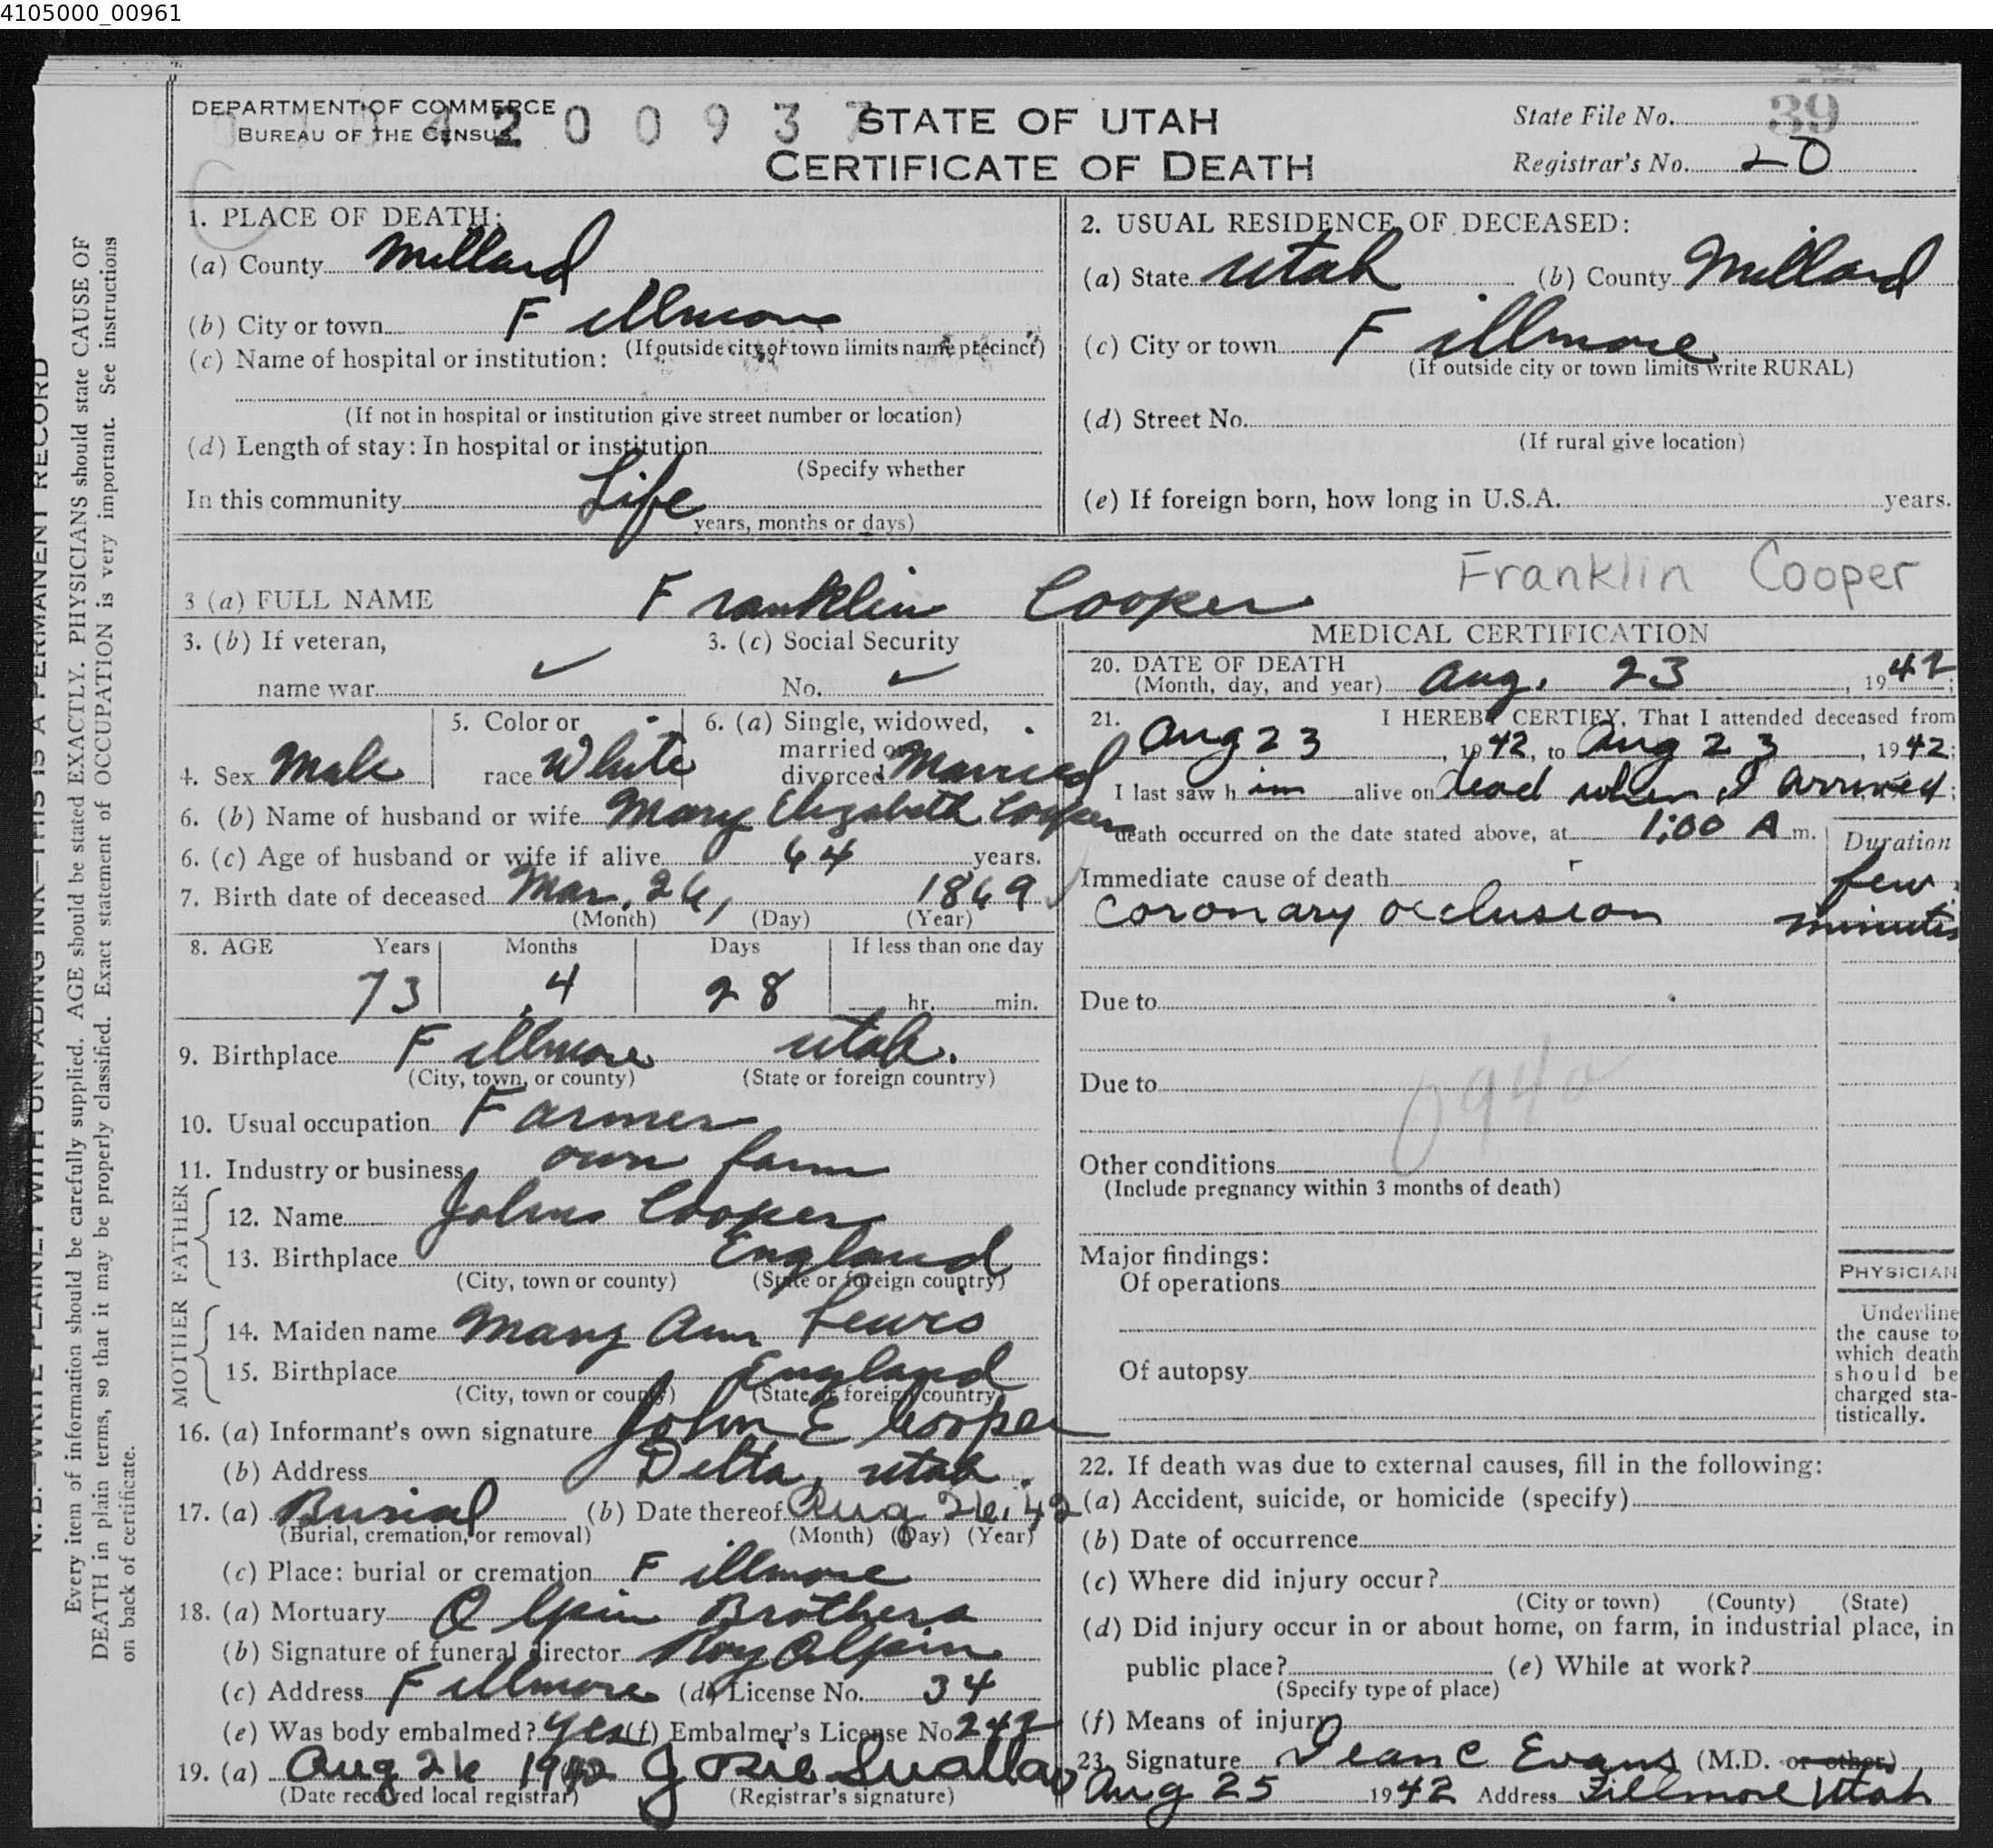 4105000_00961
DEPARTMENT OF COMMERCE
BUREAU OF THE CENSUS
4 2 0 0 9 3 7
STATE OF UTAH
CERTIFICATE OF DEATH
State File No. 39
Registrar's No. 20
1. PLACE OF DEATH:
(a) County Millard
(b) City or town Fillmore
(If outside city or town limits name precinct)
(c) Name of hospital or institution:
(If not in hospital or institution give street number or location)
(d) Length of stay: In hospital or institution
(Specify whether
In this community Life
years, months or days)
2. USUAL RESIDENCE OF DECEASED:
(a) State Utah (b) County Millard
(c) City or town Fillmore
(If outside city or town limits write RURAL)
(d) Street No.
(If rural give location)
(e) If foreign born, how long in U.S.A. years.
3 (a) FULL NAME Franklin Cooper
Franklin Cooper
3. (b) If veteran,
name war ✓
3. (c) Social Security
No. ✓
4. Sex Male
5. Color or
race White
6. (a) Single, widowed,
married or
divorced Married
6. (b) Name of husband or wife Mary Elizabeth Cooper
6. (c) Age of husband or wife if alive 64 years.
7. Birth date of deceased Mar. 26, 1869
(Month) (Day) (Year)
8. AGE Years Months Days If less than one day
73 4 28 hr. min.
9. Birthplace Fillmore Utah.
(City, town, or county) (State or foreign country)
10. Usual occupation Farmer
11. Industry or business own farm
FATHER
12. Name John Cooper
13. Birthplace England
(City, town or county) (State or foreign country)
MOTHER
14. Maiden name Mary Ann Lewis
15. Birthplace England
(City, town or county) (State or foreign country)
16. (a) Informant's own signature John E Cooper
(b) Address Delta, Utah.
17. (a) Burial (b) Date thereof Aug 26, 42
(Burial, cremation, or removal) (Month) (Day) (Year)
(c) Place: burial or cremation Fillmore
18. (a) Mortuary Olpin Brothers
(b) Signature of funeral director Roy Olpin
(c) Address Fillmore (d) License No. 34
(e) Was body embalmed? Yes (f) Embalmer's License No 242
19. (a) Aug 26 1942 Josie Swallow
(Date received local registrar) (Registrar's signature)
MEDICAL CERTIFICATION
20. DATE OF DEATH
(Month, day, and year) Aug. 23, 1942;
21. I HEREBY CERTIFY, That I attended deceased from
Aug 23, 1942, to Aug 23, 1942;
I last saw h im alive on dead when I arrived;
death occurred on the date stated above, at 1:00 A m.
Duration
Immediate cause of death
coronary occlusion
few minutes
Due to
Due to
094a
Other conditions
(Include pregnancy within 3 months of death)
Major findings:
Of operations
Of autopsy
PHYSICIAN
Underline
the cause to
which death
should be
charged sta-
tistically.
22. If death was due to external causes, fill in the following:
(a) Accident, suicide, or homicide (specify)
(b) Date of occurrence
(c) Where did injury occur?
(City or town) (County) (State)
(d) Did injury occur in or about home, on farm, in industrial place, in
public place? (e) While at work?
(Specify type of place)
(f) Means of injury
23. Signature Dean C Evans (M.D. or other)
Aug 25 1942 Address Fillmore Utah
N. B.—WRITE PLAINLY WITH UNFADING INK—THIS IS A PERMANENT RECORD
Every item of information should be carefully supplied. AGE should be stated EXACTLY. PHYSICIANS should state CAUSE OF
DEATH in plain terms, so that it may be properly classified. Exact statement of OCCUPATION is very important. See instructions
on back of certificate.